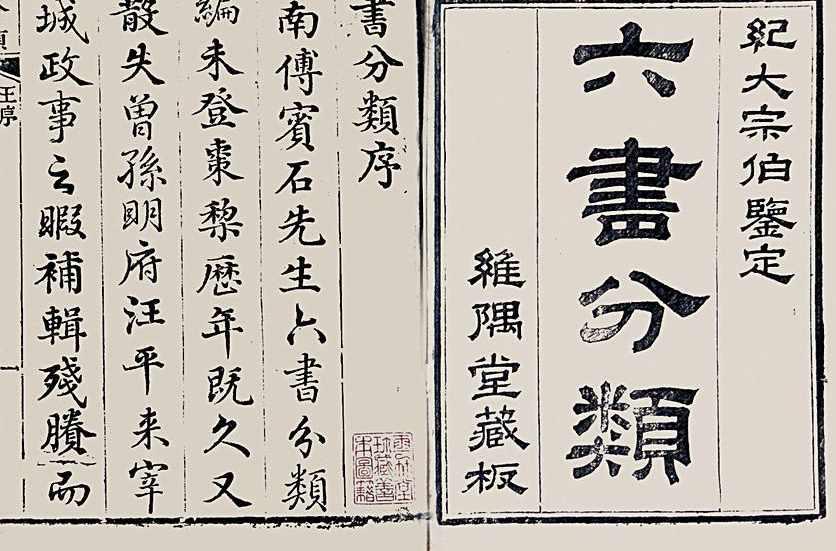 紀大宗伯鑒定
六書分類
維隅堂藏板
書分類序
南傅賓石先生六書分類
編未登棗黎歷年既久又
散失曾孫明府汪平来宰
城政事之暇補輯殘賸而
王序
一